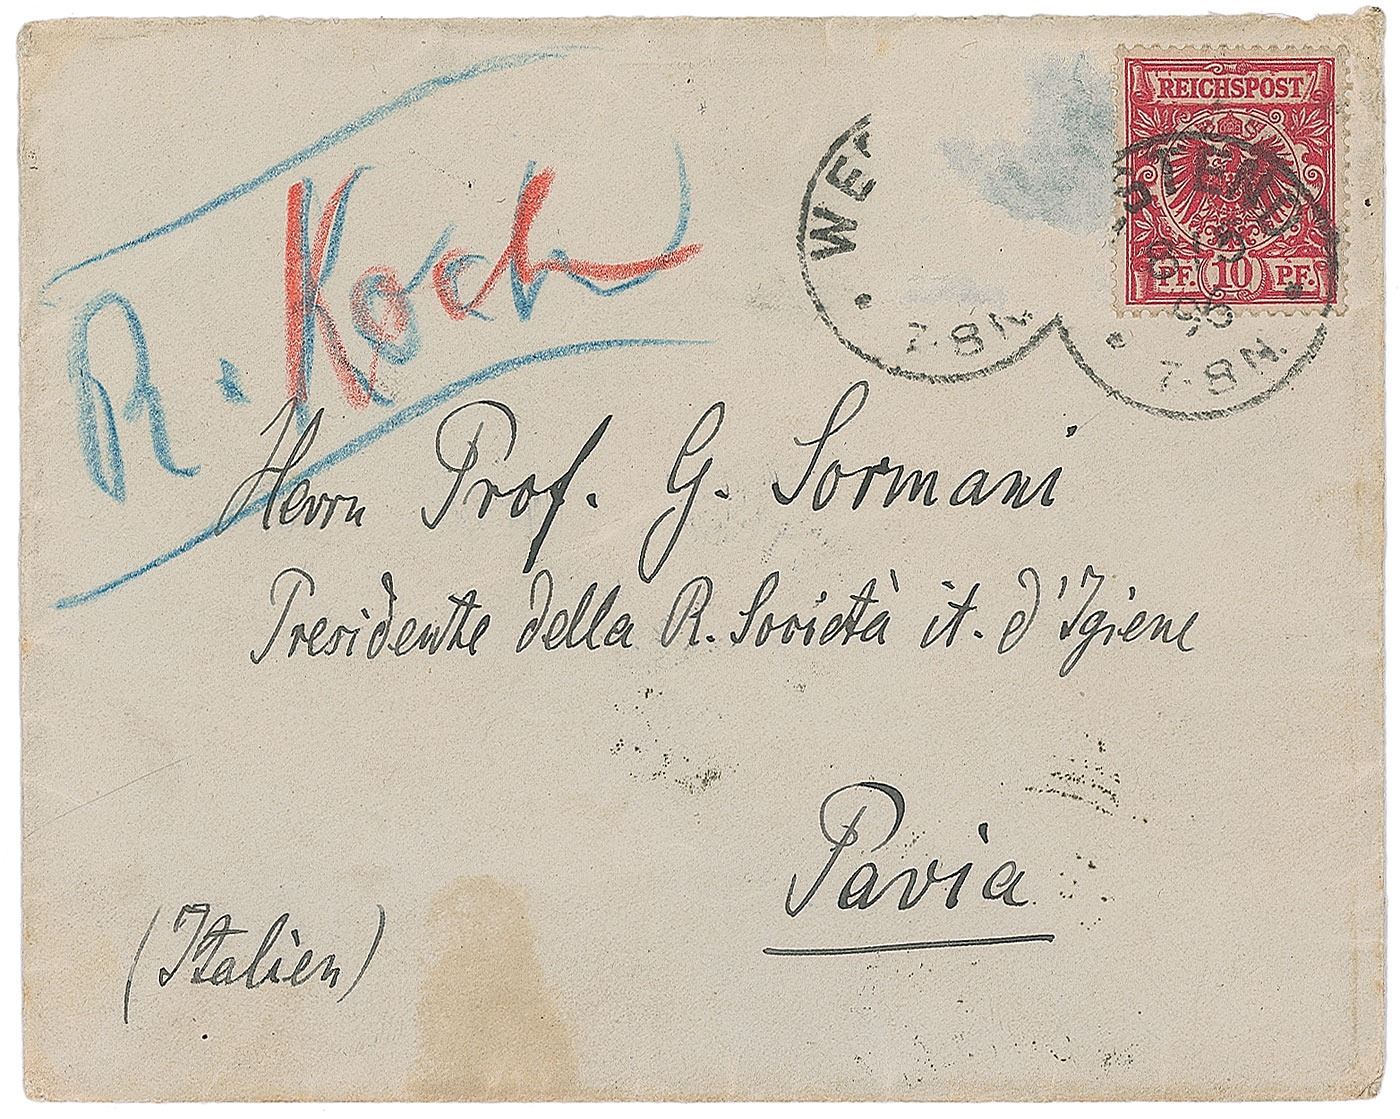 REICHSPOST
PF. 10 PF.
WE
STEND
96
7-8N.
7-8N.
R. Koch
Herrn Prof. G. Sormani
Presidente della R. Società it. d'Igiene
Pavia
(Italien)